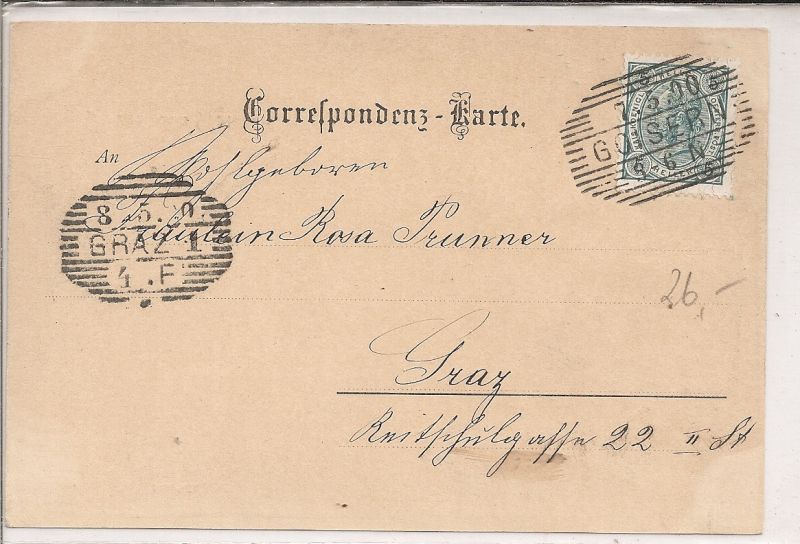 Correspondenz-Karte.
An Wohlgeboren
Fräulein Rosa Prunner
Graz
Reitschulgasse 22 II St
8 5.
GRAZ 1
4 .F
5.00
6 N
26,-